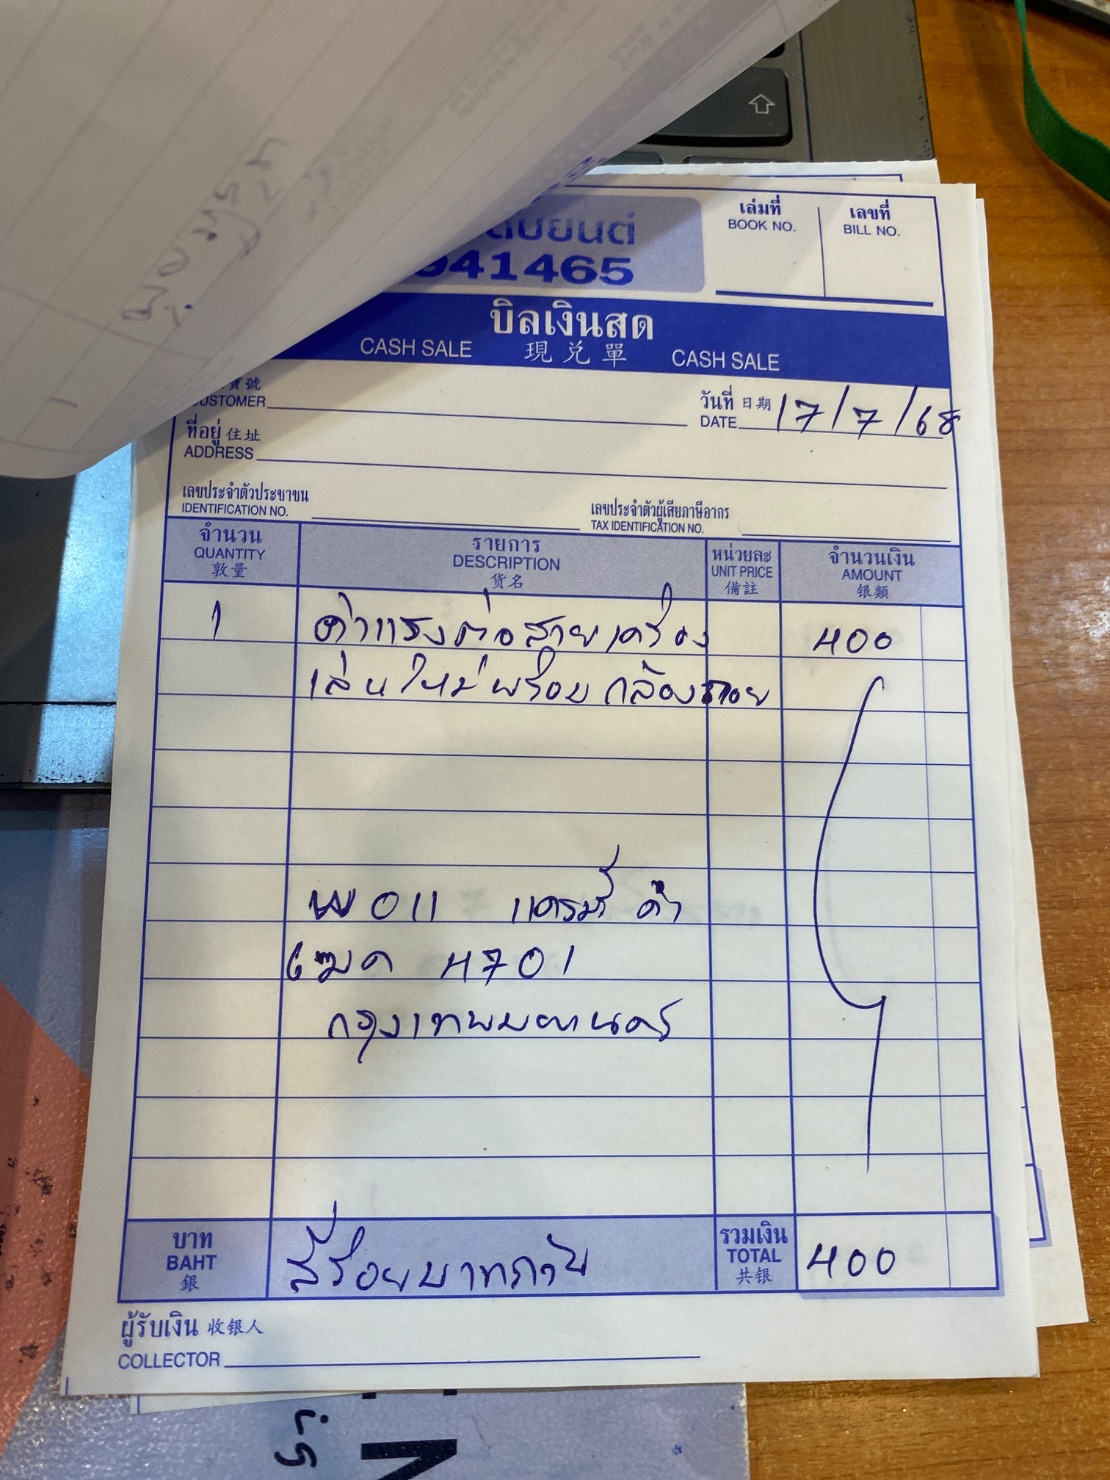 ยนต์
941465
เล่มที่
BOOK NO.
เลขที่
BILL NO.
บิลเงินสด
CASH SALE 現兌單 CASH SALE
CUSTOMER
วันที่ 日期
DATE 17/7/68
ที่อยู่ 住址
ADDRESS
เลขประจำตัวประชาชน
IDENTIFICATION NO.
เลขประจำตัวผู้เสียภาษีอากร
TAX IDENTIFICATION NO.
จำนวน
QUANTITY
敦量
รายการ
DESCRIPTION
货名
หน่วยละ
UNIT PRICE
備註
จำนวนเงิน
AMOUNT
银類
1 ค่าแรงต่อสายเครื่อง 400
เล่นใหม่พร้อมกล้องถอย
พี่อา แคมรี่ ดำ
ฆด 4701
กรุงเทพมหานคร
บาท
BAHT
銀
สี่ร้อยบาทถ้วน
รวมเงิน
TOTAL
共银
400
ผู้รับเงิน 收银人
COLLECTOR